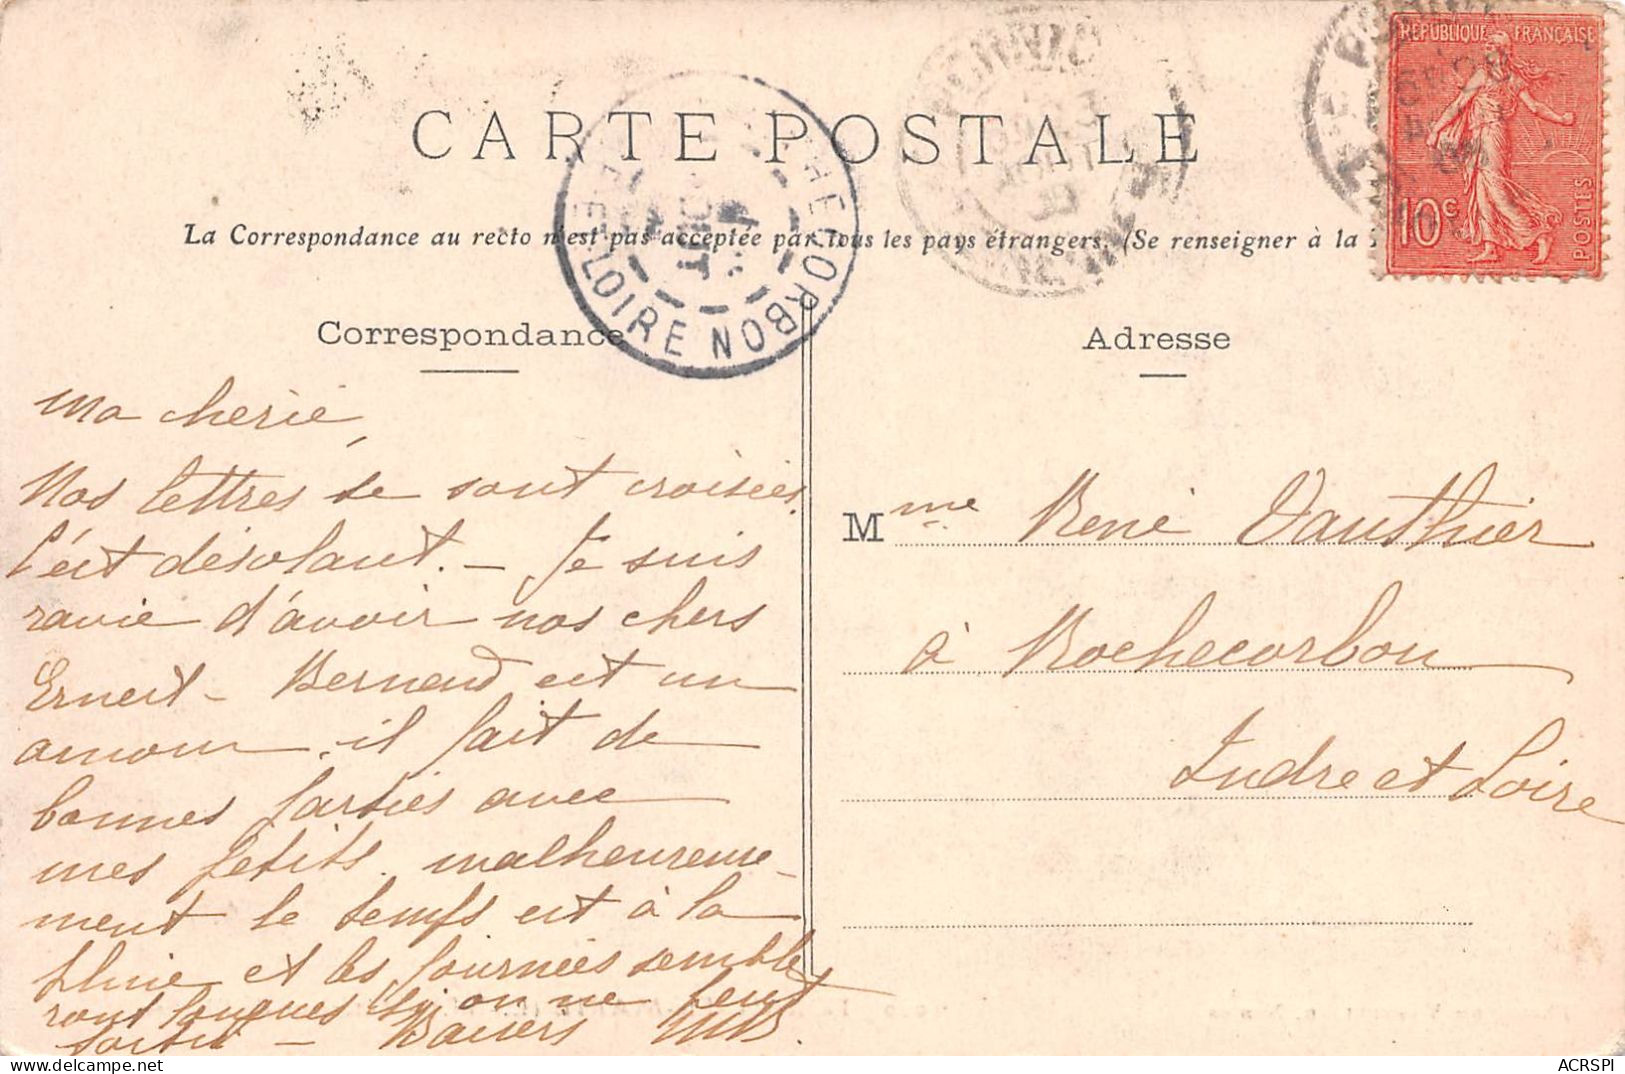 CARTE POSTALE
La Correspondance au recto n'est pas acceptée par tous les pays étrangers. (Se renseigner à la
Correspondance
Ma cherie,
Nos lettres se sont croisées.
C'est désolant. — Je suis
ravie d'avoir nos chers
Ernest — Bernard est un
amour, il fait de
bonnes parties avec
mes petits. malheureuse-
ment le temps est à la
pluie et les journées semble
ront longues si on ne peut
sortir — Baisers MB.
Adresse
Mme René Vauthier
à Rochecorbon
Indre et Loire
REPUBLIQUE FRANÇAISE
10c
POSTES
PORNIC
AOUT
HECORBON
ET LOIRE
ACRSPI